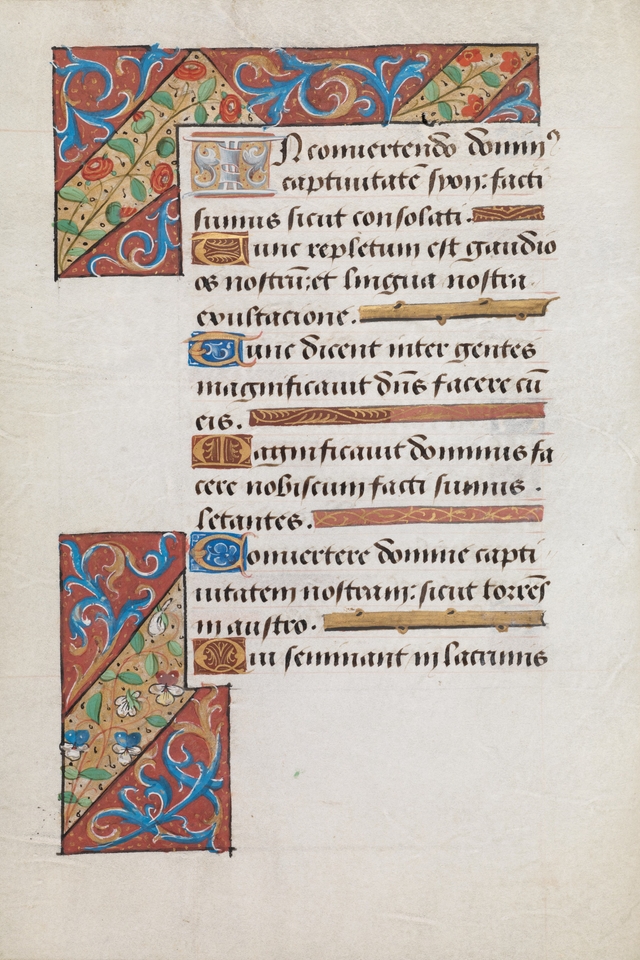 IN conuertendo domin9
captiuitatē syon: facti
sumus sicut consolati.
Tunc repletum est gaudio
os nostrū: et lingua nostra
exultacione.
Tunc dicent inter gentes
magnificauit dn̄s facere cū
eis.
Magnificauit dominus fa
cere nobiscum facti sumus .
letantes.
Conuertere domine capti
uitatem nostram: sicut torrēs
in austro.
Qui seminant in lacrimis